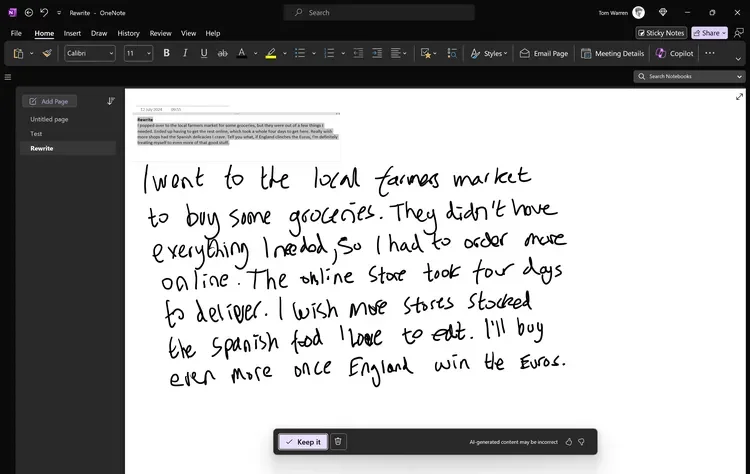 Rewrite - OneNote
Search
Tom Warren
File Home Insert Draw History Review View Help
Sticky Notes
Share
Calibri
11
B I U ab A
Styles
Email Page
Meeting Details
Copilot
Search Notebooks
Add Page
Untitled page
Test
Rewrite
12 July 2024
Rewrite
I popped over to the local farmers market for some groceries, but they were out of a few things I
needed. Ended up having to get the rest online, which took a whole four days to get here. Really wish
more shops had the Spanish delicacies I crave. Tell you what, if England clinches the Euros, I'm definitely
treating myself to even more of that good stuff.
I went to the local farmers market
to buy some groceries. They didn't have
everything I needed, so I had to order more
online. The online store took four days
to deliver. I wish more stores stocked
the Spanish food I love to eat. I'll buy
even more once England win the Euros.
Keep it
AI-generated content may be incorrect